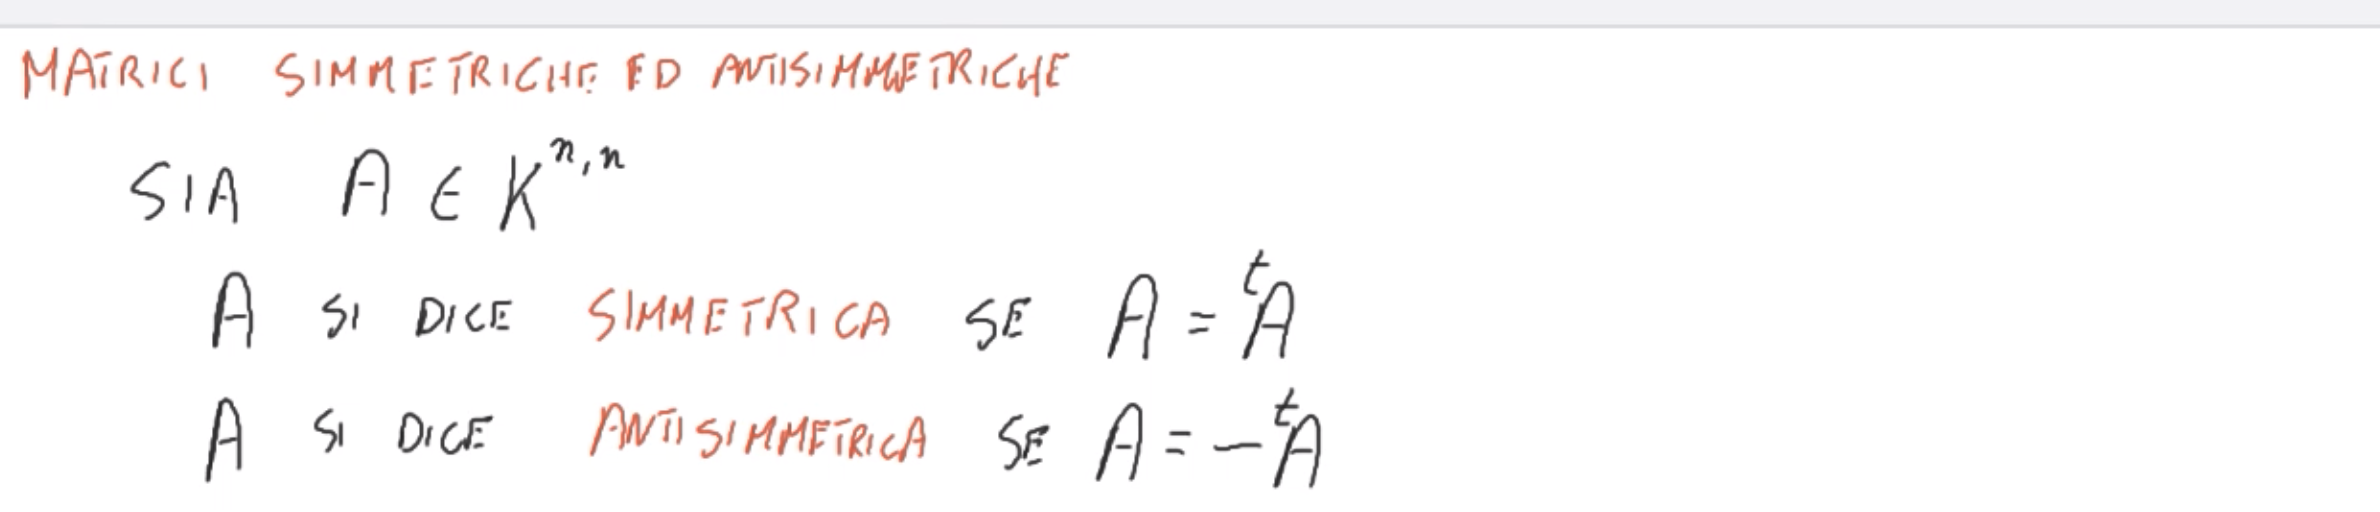 MATRICI SIMMETRICHE ED ANTISIMMETRICHE
SIA A ∈ K^{n,n}
A SI DICE SIMMETRICA SE A = ᵗA
A SI DICE ANTISIMMETRICA SE A = -ᵗA